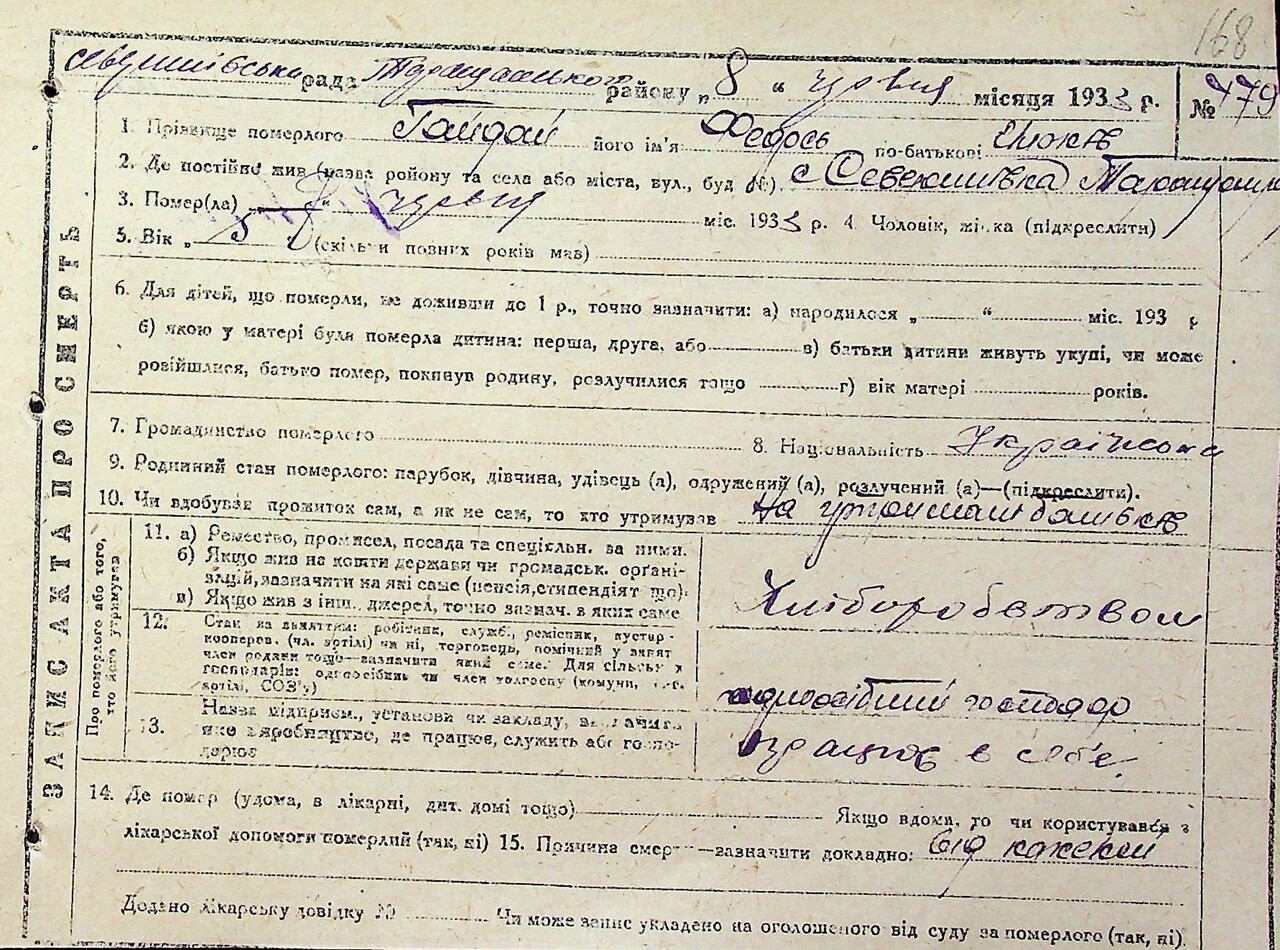 168
рада Таращанського району „ 8 “ червня місяця 1933 р.
№ 479
1. Прізвище померлого Гайдай його ім'я Федось по-батькові
2. Де постійно жив (назва району та села або міста, вул., буд №) с
3. Помер(ла) червня міс. 1933 р. 4. Чоловік, жінка (підкреслити)
5. Вік „ 5 (скільки повних років мав)
6. Для дітей, що померли, не доживши до 1 р., точно зазначити: а) народилося „ “ міс. 193 р
б) якою у матері була померла дитина: перша, друга, або в) батьки дитини живуть укупі, чи може
розійшлися, батько помер, покинув родину, розлучилися тощо г) вік матері років.
7. Громадянство померлого 8. Національність Українська
9. Родинний стан померлого: парубок, дівчина, удівець (а), одружений (а), розлучений (а)—(підкреслити).
10. Чи вдобував прожиток сам, а як не сам, то хто утримував На
ЗАПИС АКТА ПРО СМЕРТЬ
Про померлого або того,
хто його утримував
11. а) Ремество, промисел, посада та спеціяльн. за ними.
б) Якщо жив на кошти держави чи громадськ. орґані-
зацій, зазначити на які саме (пенсія, стипендіят що).
в) Якщо жив з інш. джерел, точно зазнач. в яких саме
Хліборобством
12. Стан за заняттям: робітник, служб., ремісник, кустар-
кооперов. (чл. артілі) чи ні, торговець, помічний у занят
член родини тощо—зазначити який саме. Для сільськ
господарів: одноосібник чи член колгоспу (комуни,
артілі, СОЗ'у)
одноосібний господар
13. Назва підприєм., установи чи закладу, зазначити
яке виробництво, де працює, служить або госпо-
дарює
працює в себе
14. Де помер (удома, в лікарні, дит. домі тощо) Якщо вдома, то чи користувався з
лікарської допомоги померлий (так, ні) 15. Причина смерти—зазначити докладно: від
Додано лікарську довідку № Чи може запис укладено на оголошеного від суду за померлого (так, ні).